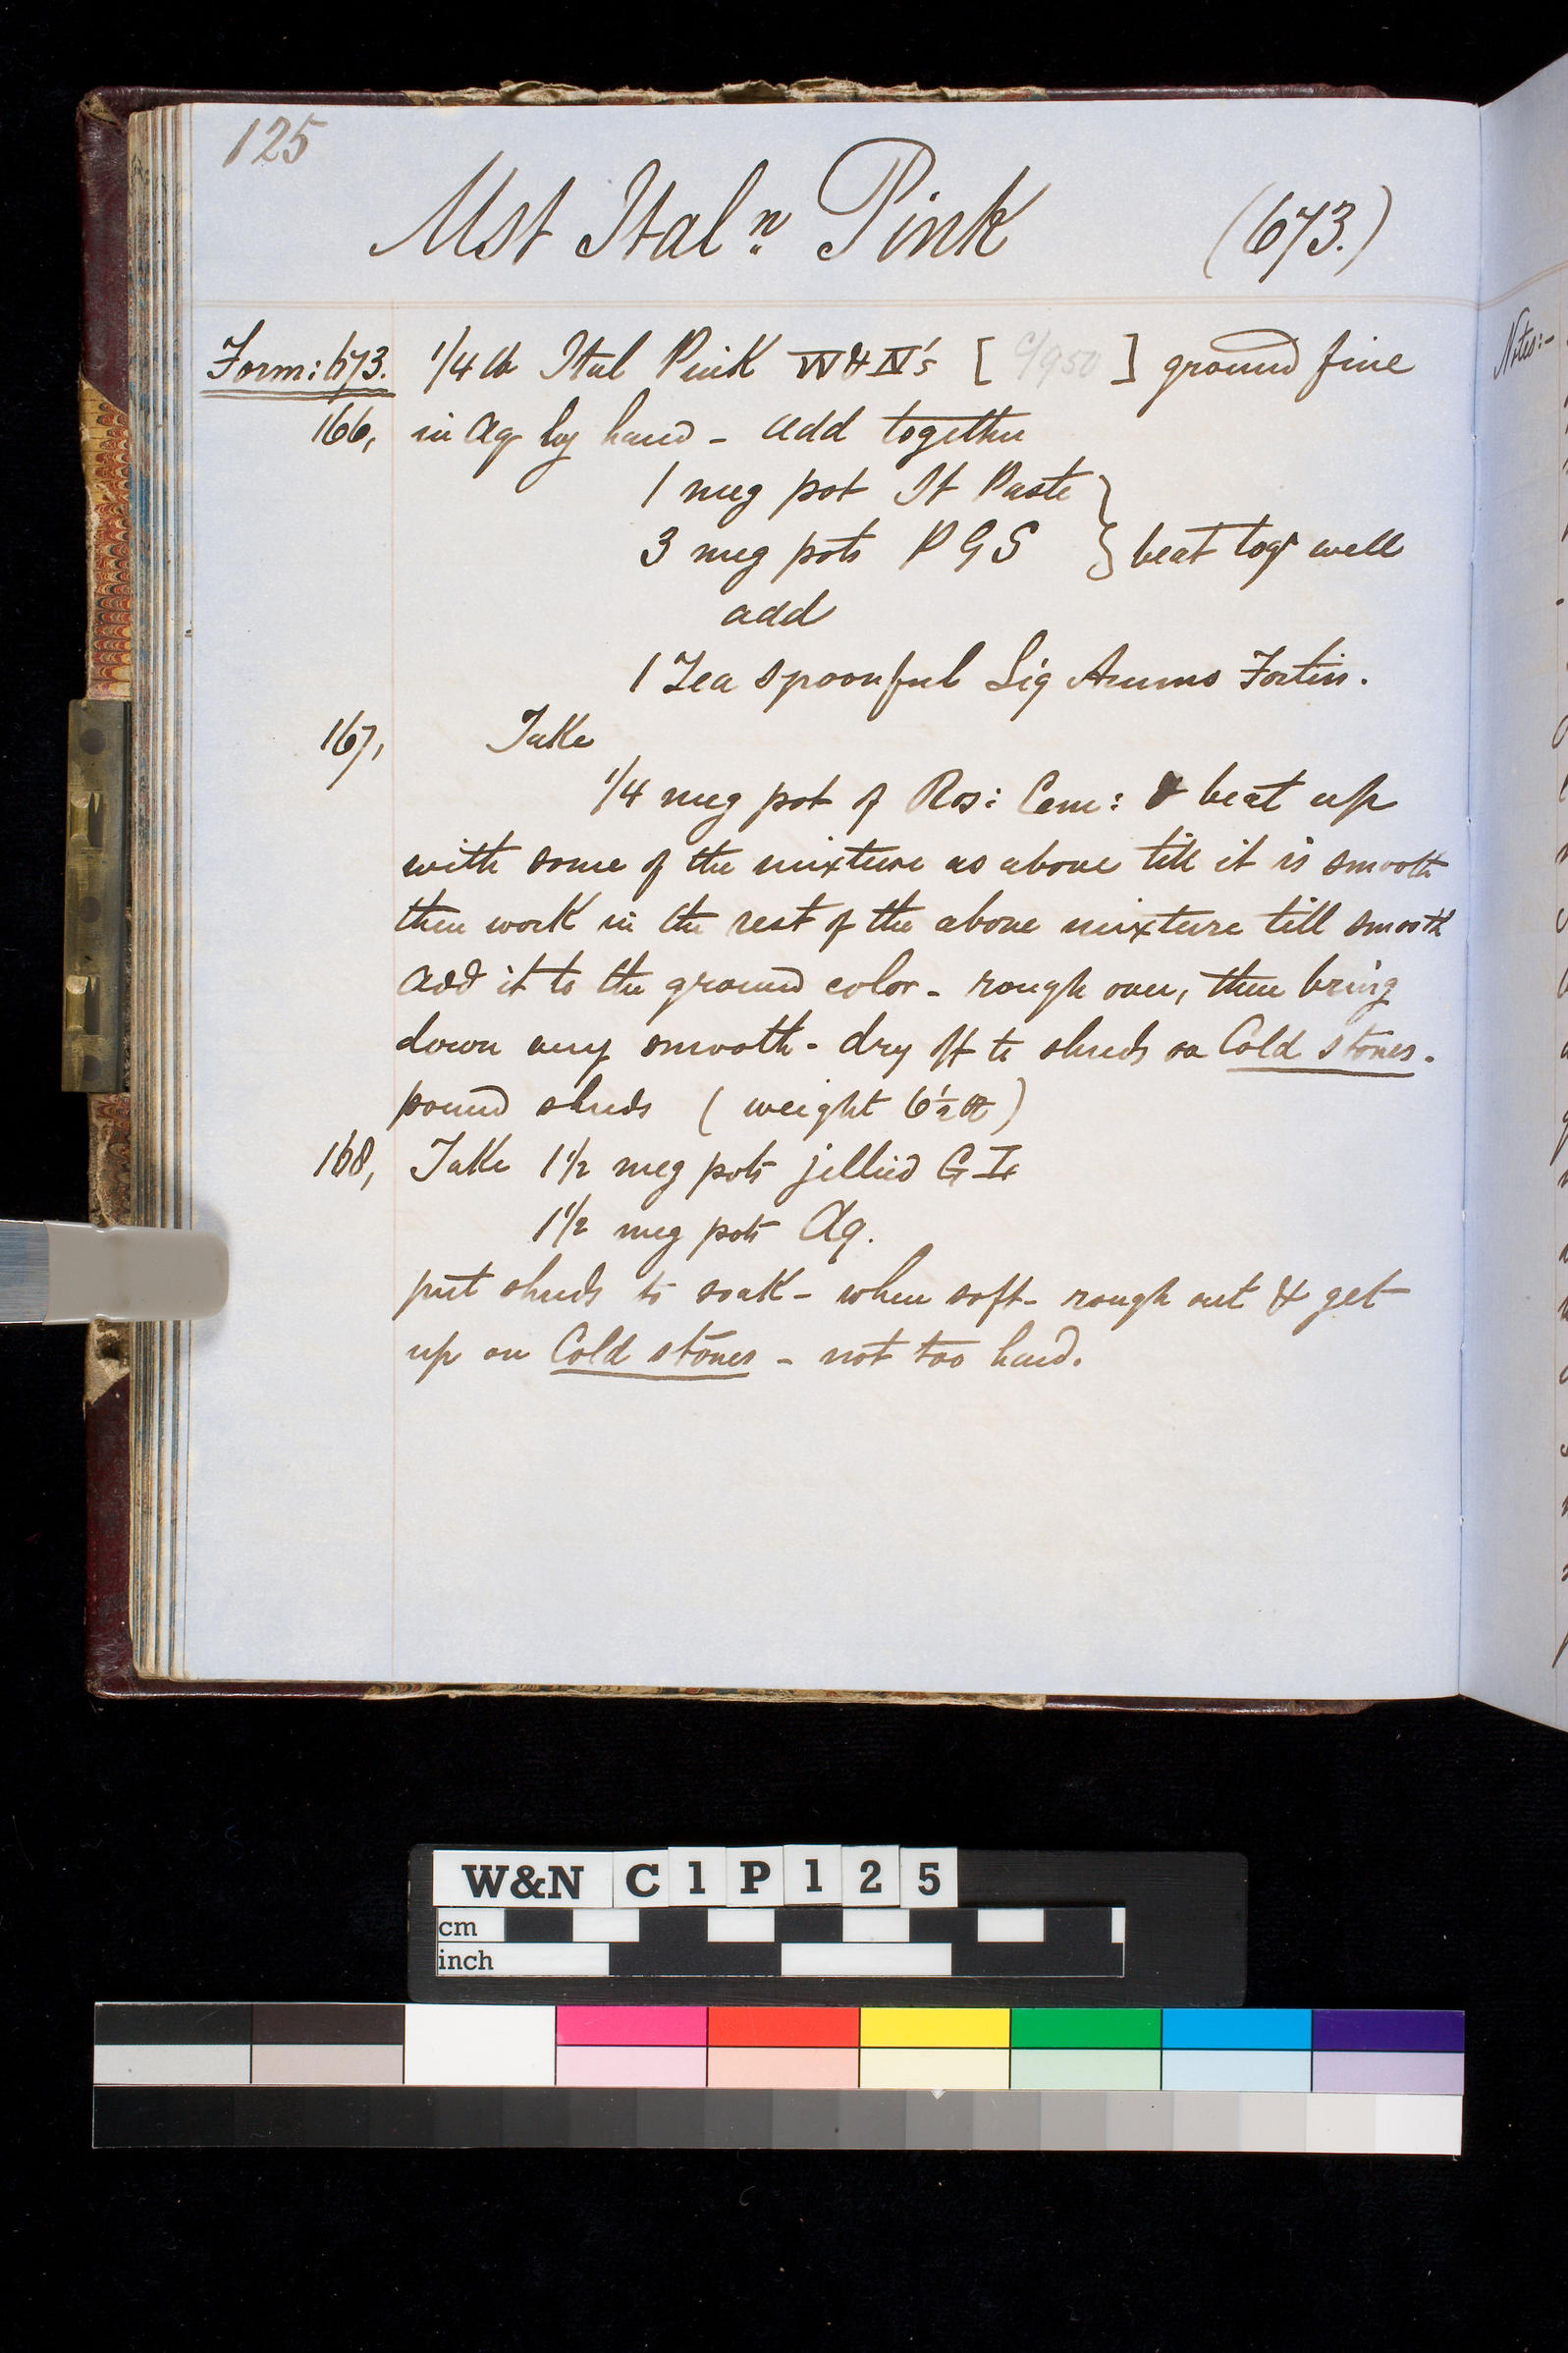 125
Mst Italn. Pink (673.)
Form: 673. 1/4 lb Ital Pink W & N's [ C/950 ] ground fine
166, in Aq by hand - add together
1 meg pot It Paste
3 meg pots P G S } beat togr well
add
1 Tea spoonful Liq Ammo Fortis.
167, Take
1/4 meg pot of Ros: Cem: & beat up
with some of the mixture as above till it is smooth
then work in the rest of the above mixture till smooth
add it to the ground color - rough over, then bring
down very smooth - dry off to shreds on Cold stones.
pound shreds ( weight 6 1/2 oz )
168, Take 1 1/2 meg pots jellied G
1 1/2 meg pots Aq.
put shreds to soak - when soft - rough out & get
up on Cold stones - not too hard.
Notes:-
W&N C1P125
cm
inch